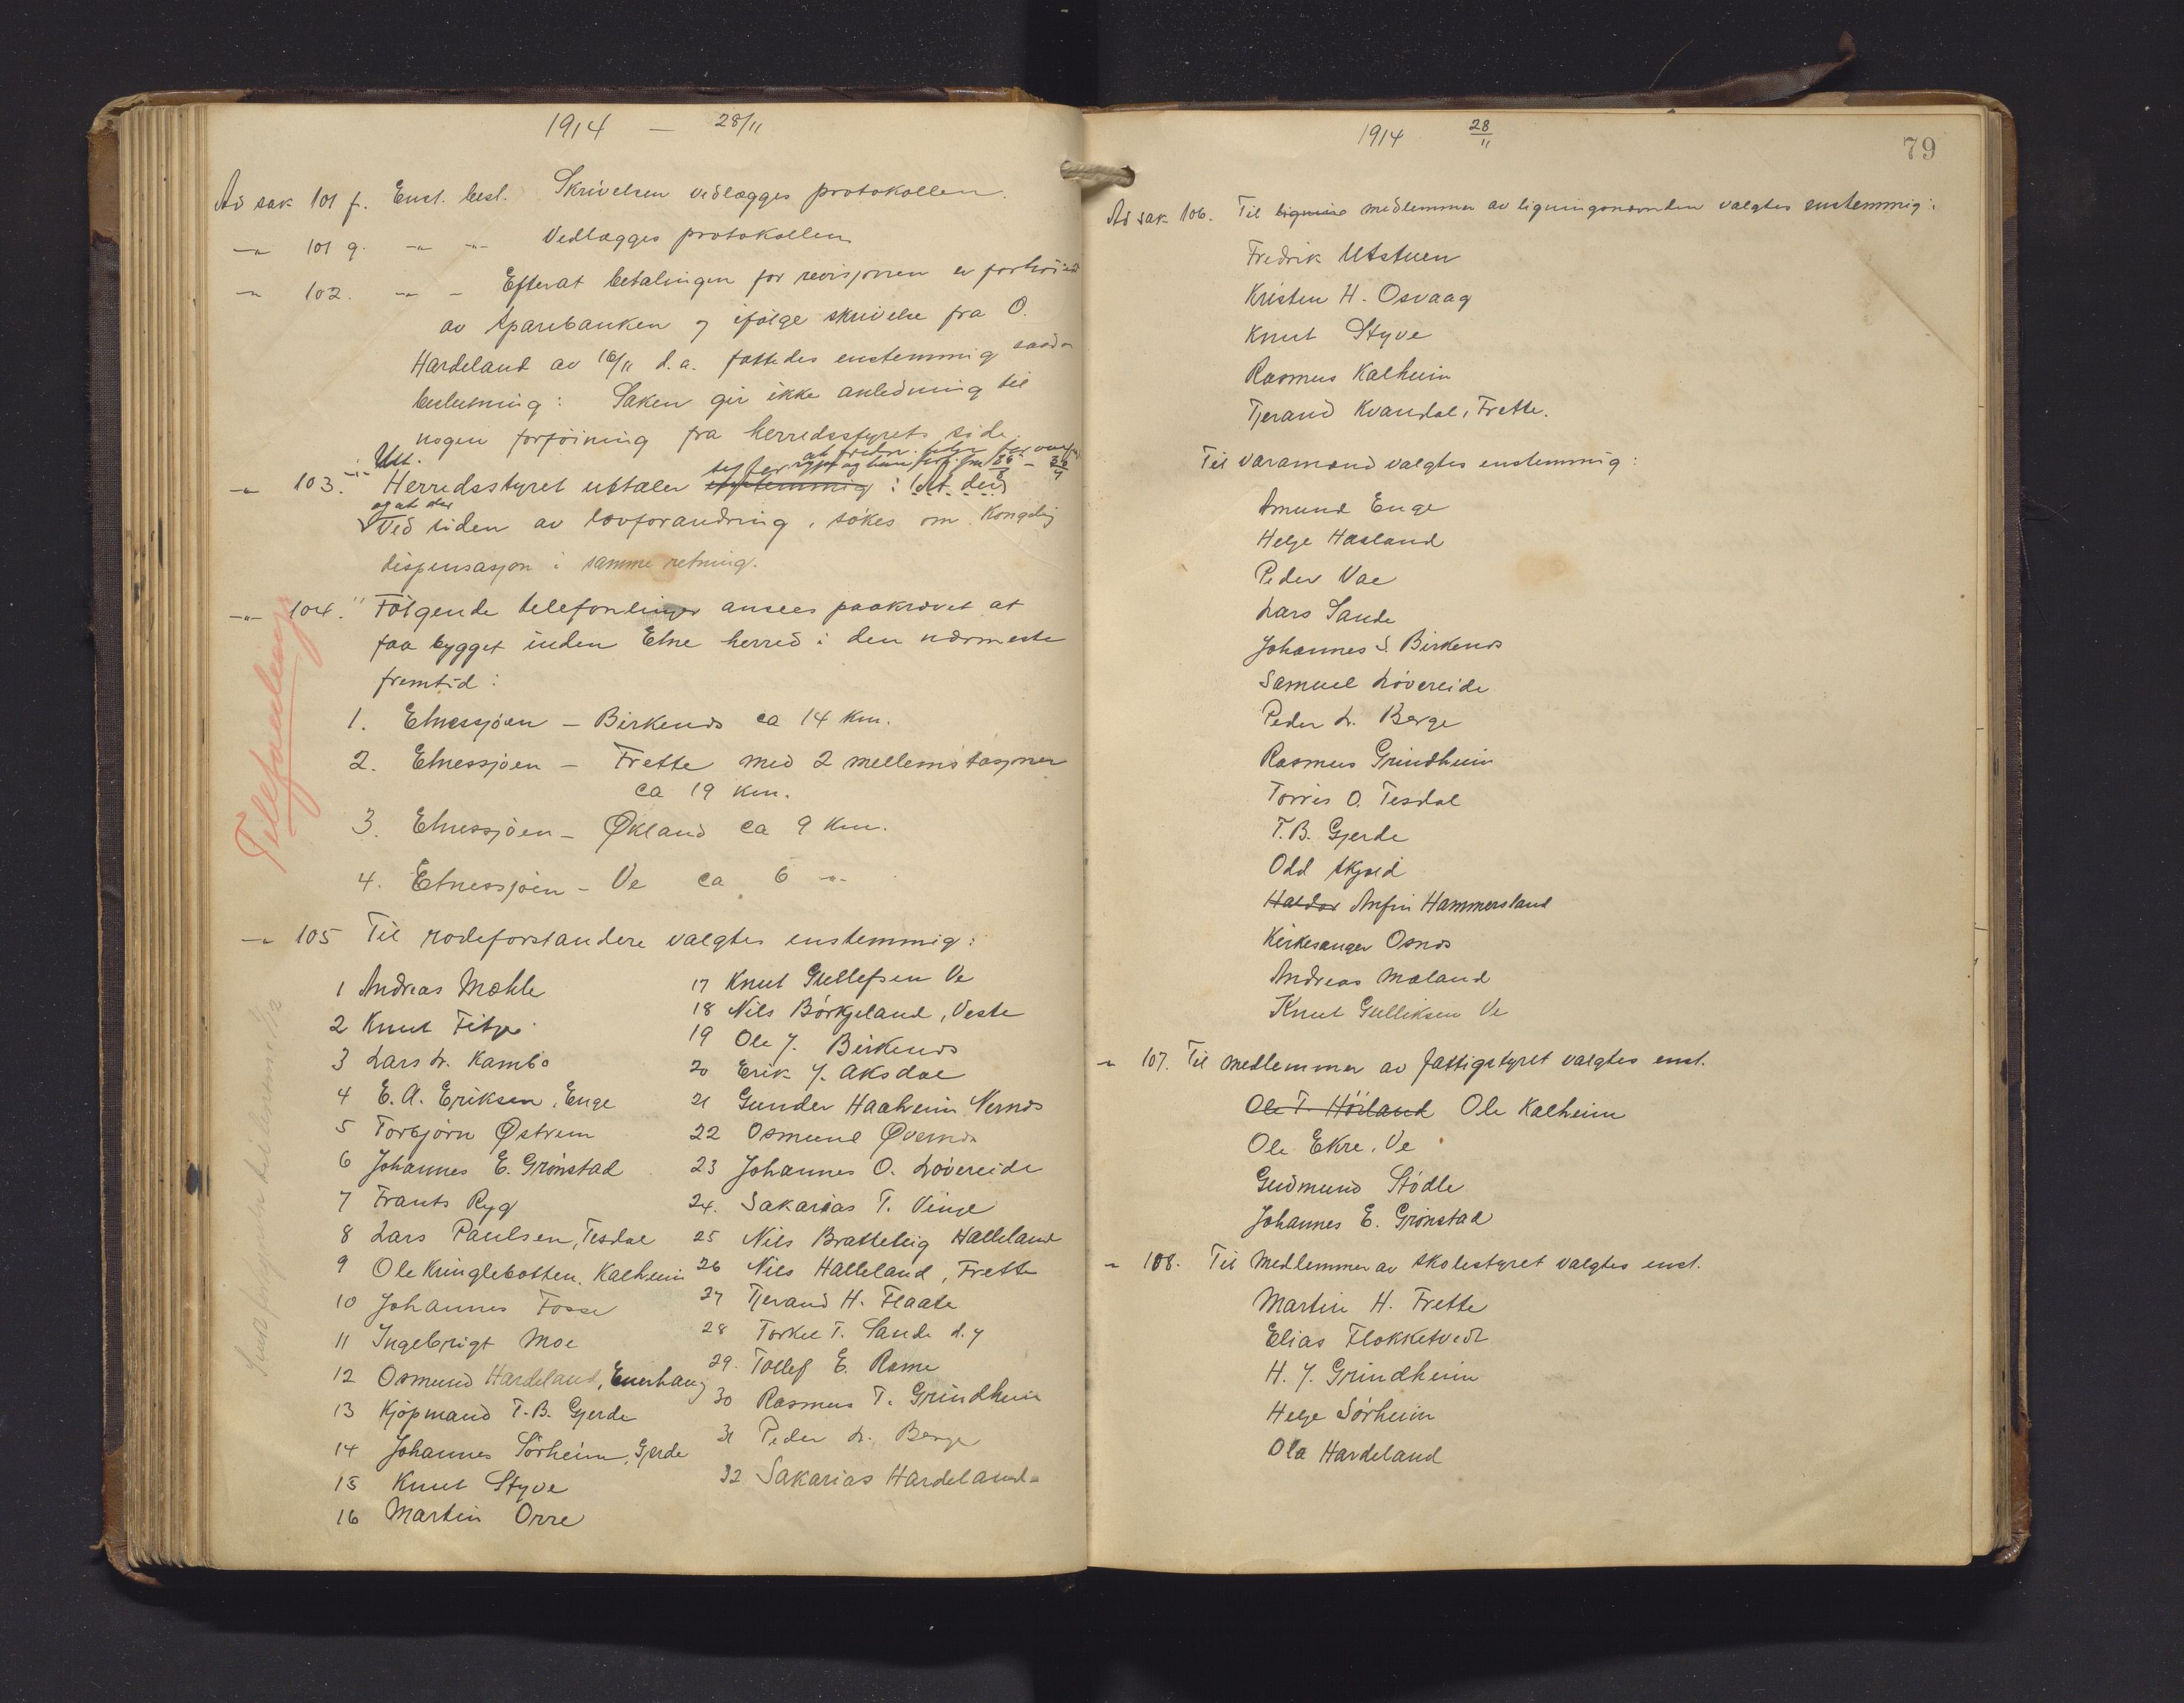 1914 — 28/11
Ad sak 101 f. Enst. besl. Skrivelsen vedlægges protokollen.
-"- 101 g. -"- -"- Vedlægges protokollen
-"- 102. -"- - Efterat betalingen for revisjonen er forhöiet
av Sparebanken og ifölge skrivelse fra O.
Hardeland av 16/11 d.a. fattedes enstemmig saadan
beslutning: Saken gir ikke anledning til
nogen forföining fra herredsstyrets side.
-"- 103. Herredsstyret uttaler enstemmig:
og at der
Ved siden av lovforandring, sökes om Kongelig
dispensasjon i samme retning.
Telefonanlæg
-"- 104. Fölgende telefonlinjer ansees paakrævet at
faa bygget inden Etne herred i den nærmeste
fremtid:
1. Etnessjöen - Birkenes ca 14 km.
2. Etnessjöen - Frette med 2 mellemstasjoner
ca 19 km.
3. Etnessjöen - Økland ca 9 km.
4. Etnessjöen - Ve ca 6 -"-
-"- 105 Til rodeforstandere valgtes enstemmig:
1 Andreas Mæhle
2 Knut Fitje
3 Lars L. Kambo
4 E. A. Eriksen, Enge
5 Torbjörn Østrem
6 Johannes E. Grönstad
7 Frants Ryg
8 Lars Paulsen, Tesdal
9 Ole Kringlebotten, Kalheim
10 Johannes Fosse
11 Ingebrigt Moe
12 Osmund Hardeland, Enerhaug
13 Kjöpmand T. B. Gjerde
14 Johannes Sörheim, Gjerde
15 Knut Styve
16 Martin Orre
17 Knut Gullefsen Ve
18 Nils Börkjeland, Veste
19 Ole J. Birkenes
20 Erik J. Aksdal
21 Gunder Haaheim Nernes
22 Osmund Øvernes
23 Johannes O. Lövereide
24. Sakarias T. Vinje
25 Nils Bratteteig Halleland
26 Nils Halleland, Frette
27 Tjerand H. Flaate
28 Torkel T. Sande d.y
29. Tollef E. Rame
30 Rasmus T. Grindheim
31 Peder L. Berge
32 Sakarias Hardeland
1914 28/11
79
Ad sak 106. Til medlemmer av ligningsnævnden valgtes enstemmig:
Fredrik Utstuen
Kristen H. Osvaag
Knut Styve
Rasmus Kalheim
Tjerand Kvandal, Frette.
Til varamænd valgtes enstemmig:
Amund Enge
Helge Håland
Peder Vae
Lars Sande
Johannes S. Birkenes
Samuel Lövereide
Peder L. Berge
Rasmus Grindheim
Torris O. Tesdal
T. B. Gjerde
Odd Skjold
Haldor Anfin Hammersland
Kirkesanger Osnes
Andreas Mæland
Knut Gulliksen Ve
-"- 107. Til medlemmer av fattigstyret valgtes enst.
Ole T. Hörland Ole Kalheim
Ole Ekre, Ve
Gudmund Stödle
Johannes E. Grönstad
-"- 108. Til medlemmer av skolestyret valgtes enst.
Martin H. Frette
Elias Flokketvedt
H. J. Grindheim
Helge Sörheim
Ola Hardeland